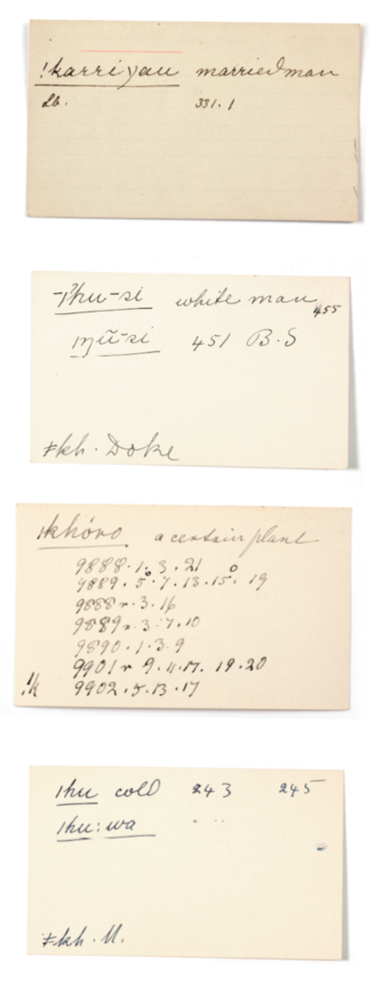 !karriyau married man
Lb. 331.1
white man 455
451 B.S
ǂkh. Doke
a certain plant
9888.1.3.21
9889.5.7.13.15. 19
9888v.3.16
9889v.3.7.10
9890.1.3.9
9901v 9.11.17. 19.20
!k 9902.5.13.17
ǀhu cold 243 245
ǀhu:wa
ǂkh. M.